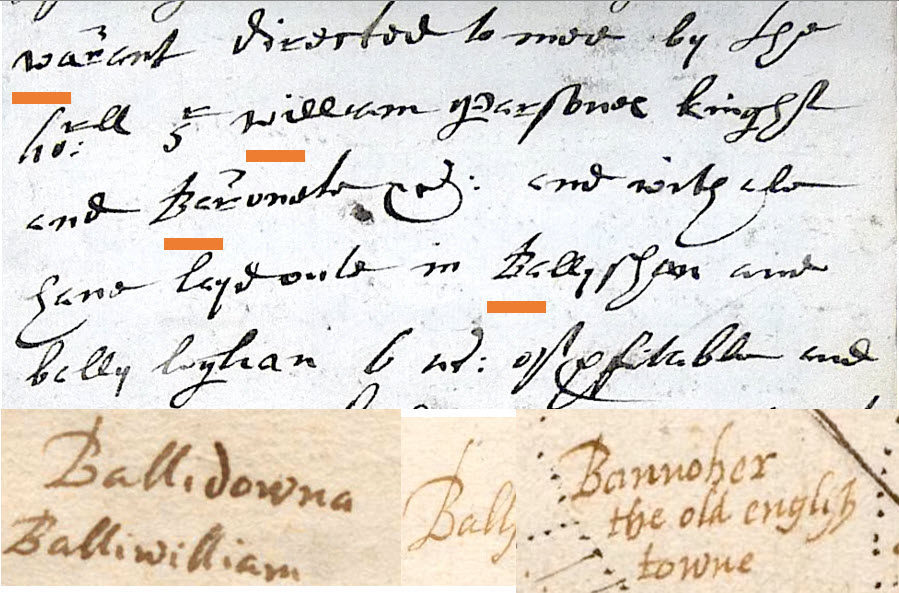 warant directed to mee by the
ho:ll Sr william Parsones knighst
and Baronete &c: and with alsoe
have layd oute in Ballyshan and
bally loghan 6 ac: of pfitable and
Ballidowna
Balliwilliam
Bally
Bannoher
the old english
towne